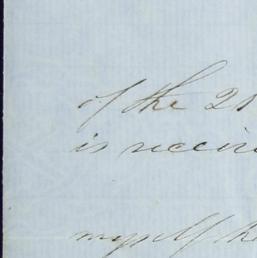 of the 28
is receiv
myself the